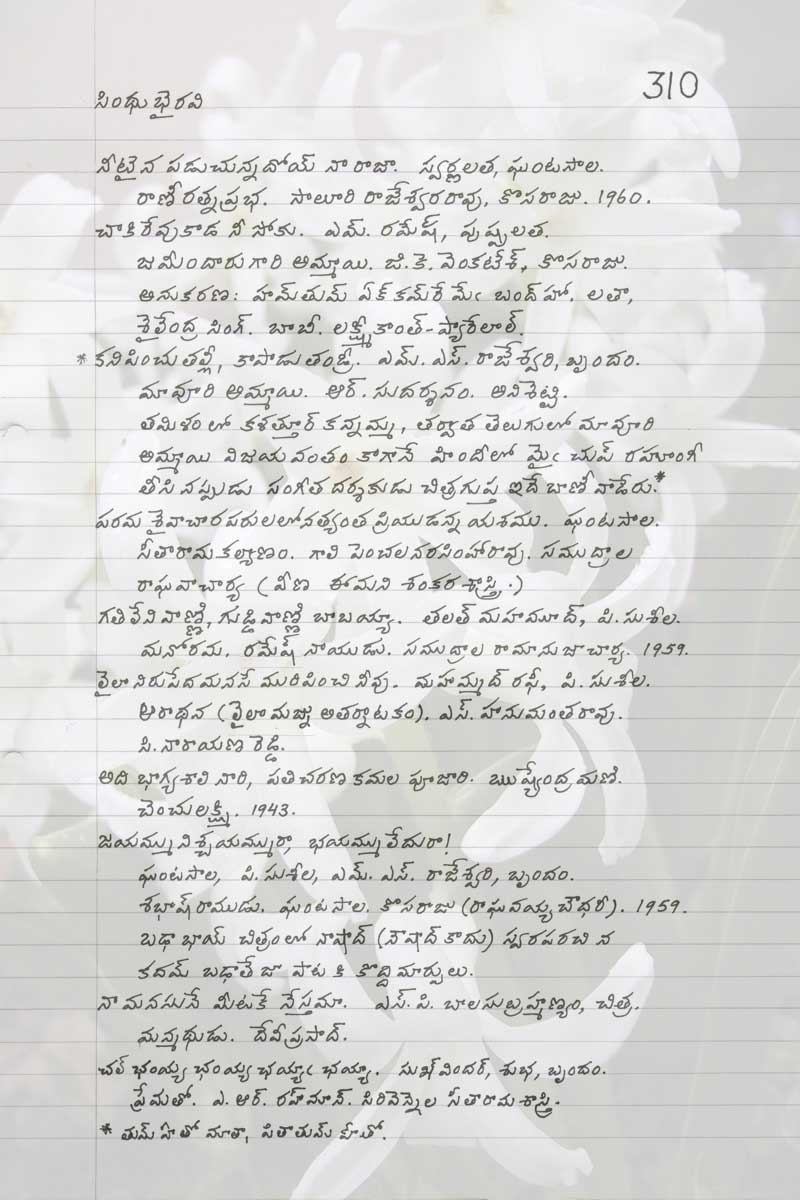 310
సింధుభైరవి
నీటైన పడుచున్నదోయ్ నా రాజా. స్వర్ణలత, ఘంటసాల.
రాణీరత్నప్రభ. సాలూరి రాజేశ్వరరావు, కొసరాజు. 1960.
చాకిరేవుకాడ నీ సోకు. ఎమ్. రమేష్, పుష్పలత.
జమీందారుగారి అమ్మాయి. జి.కె. వెంకటేశ్, కొసరాజు.
అనుకరణ: హమ్ తుమ్ ఏక్ కమ్‌రే మేఁ బంద్ హో. లతా,
శైలేంద్ర సింగ్. బాబీ. లక్ష్మీకాంత్-ప్యారేలాల్.
* కనిపించుతల్లీ, కాపాడుతండ్రీ. ఎమ్. ఎస్. రాజేశ్వరి, బృందం.
మావూరి అమ్మాయి. ఆర్. సుదర్శనం. అనిశెట్టి.
తమిళంలో కళత్తూర్ కన్నమ్మ, తర్వాత తెలుగులో మావూరి
అమ్మాయి విజయవంతం కాగానే హిందీలో మైఁ చుప్ రహూంగీ
తీసినప్పుడు సంగీతదర్శకుడు చిత్రగుప్త ఇదే బాణీ వాడేరు.*
పరమ శైవాచారపరులలోనత్యంత ప్రియుడన్న యశము. ఘంటసాల.
సీతారామకల్యాణం. గాలి పెంచలనరసింహారావు. సముద్రాల
రాఘవాచార్య (వీణ ఈమని శంకరశాస్త్రి.)
గతిలేనివాణ్ణి, గుడ్డివాణ్ణి బాబయ్యా. తలత్ మహమూద్, పి.సుశీల.
మనోరమ. రమేష్ నాయుడు. సముద్రాల రామానుజాచార్య. 1959.
లైలా నిరుపేద మనసే మురిపించి నీవు. మహమ్మద్ రఫీ, పి.సుశీల.
ఆరాధన (లైలామజ్ను అంతర్నాటకం). ఎస్. హనుమంతరావు.
సి.నారాయణ రెడ్డి.
అది భాగ్యశాలి నారి, పతిచరణకమల పూజారి. ఋష్యేంద్రమణి.
చెంచులక్ష్మి. 1943.
జయమ్ము నిశ్చయమ్మురా, భయమ్ము లేదురా!
ఘంటసాల, పి.సుశీల, ఎమ్. ఎస్. రాజేశ్వరి, బృందం.
శభాష్ రాముడు. ఘంటసాల. కొసరాజు (రాఘవయ్య చౌధరి). 1959.
బడా భాయ్ చిత్రంలో నాషాద్ (నౌషాద్ కాదు) స్వరపరచిన
కదమ్ బఢాతే జా పాటకి కొద్ది మార్పులు.
నా మనసునే మీటకే నేస్తమా. ఎస్. పి. బాలసుబ్రహ్మణ్యం, చిత్ర.
మన్మథుడు. దేవీప్రసాద్.
చల్ ఛంయ్య ఛంయ్య ఛయ్యాఁ ఛయ్యా. సుఖ్‌విందర్, శుభ, బృందం.
ప్రేమతో. ఎ. ఆర్. రహ్మాన్. సిరివెన్నెల సీతారామశాస్త్రి.
* తుమ్ హీ హో మాతా, పితా తుమ్ హీ హో.